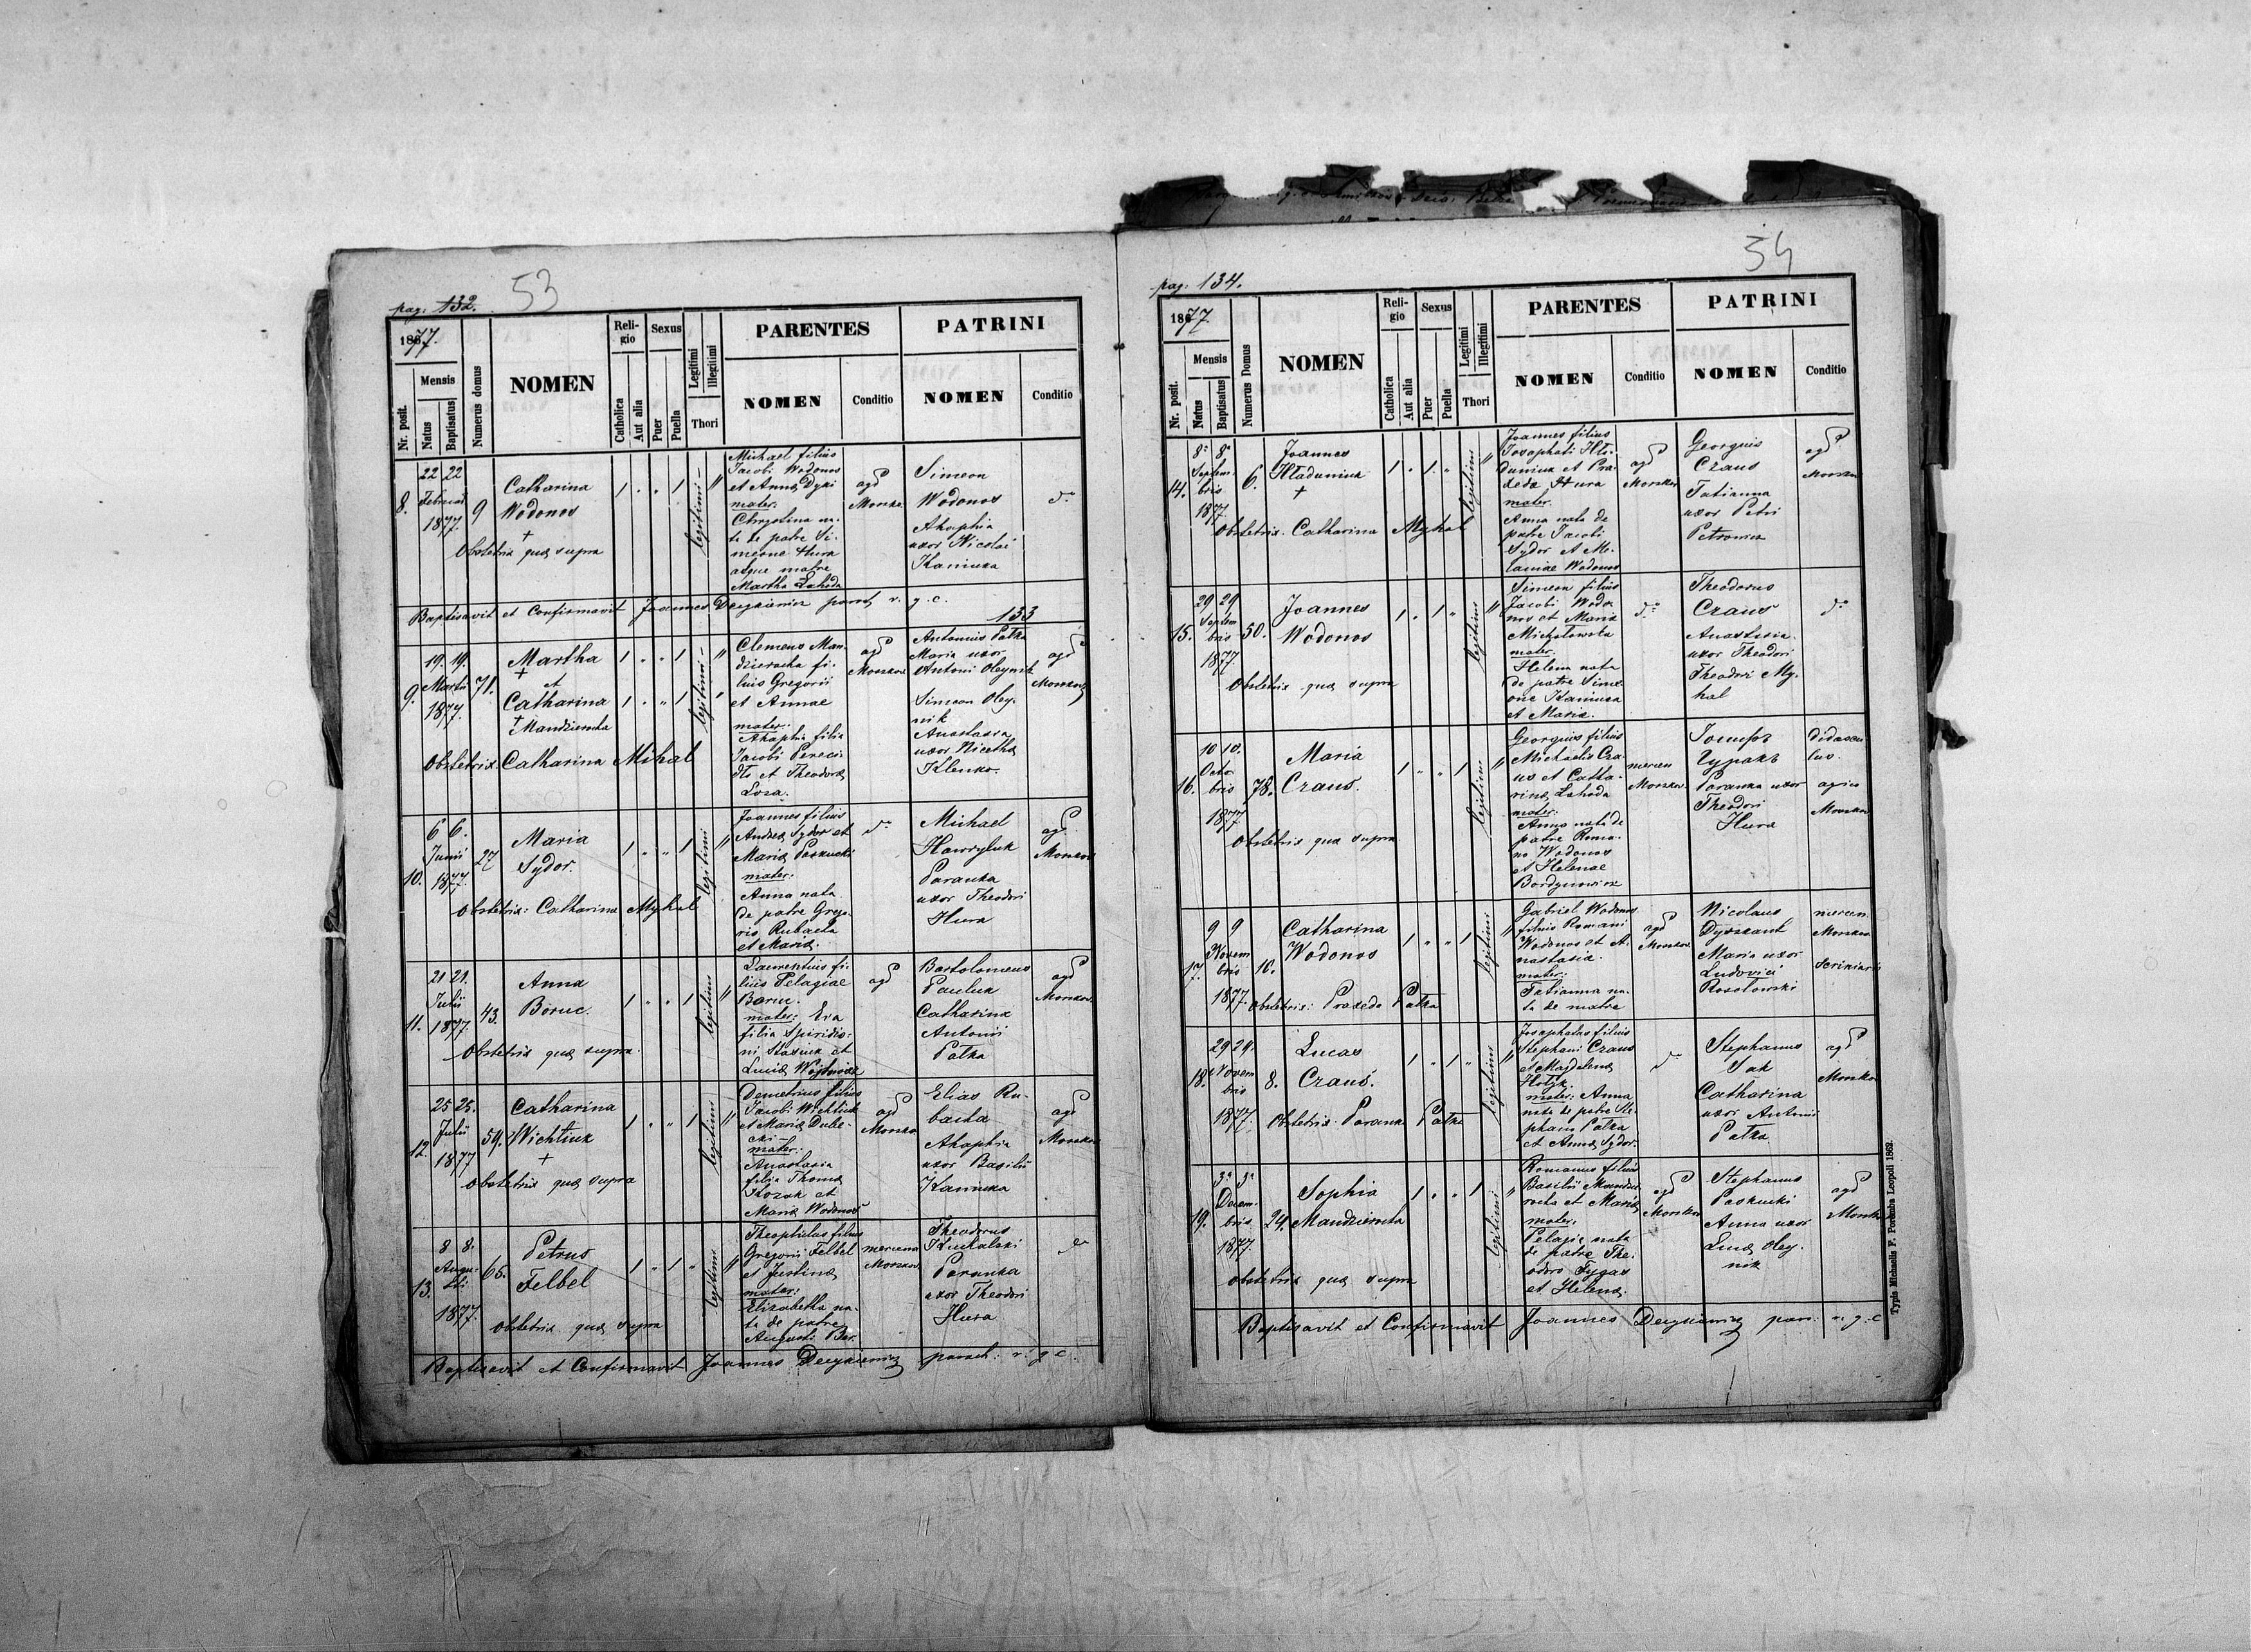 53
pag. 132.
1877.
Mensis
Nr. posit.
Natus
Baptisatus
Numerus domus
NOMEN
Religio
Catholica
Aut alia
Sexus
Puer
Puella
Legitimi
Illegitimi
Thori
PARENTES
NOMEN
Conditio
PATRINI
NOMEN
Conditio
8.
22 22
Februarii
1877.
9
Catharina
Wodonos
+
Obstetrix quae supra
1 . . 1
legitimi
Michael filius
Jacobi Wodonos
et Anna Dyki
mater.
Chrystina na-
ta de patre Si-
meone Hura
atque matre
Martha Lahoda
agr
Morskow
Simeon
Wodonos
Ahaphia
uxor Nicolai
Kaniuka
do
Baptisavit et Confirmavit Joannes Deykiewicz paroch r. g. c.
133
9.
19. 19.
Martii
1877.
71.
Martha
+
et
Catharina
+ Mandzierocha
Obstetrix. Catharina Mihal
1 . . 1
1 . " 1
legitimi
Clemens Man-
dzierocha fi-
lius Gregorii
et Annae
mater.
Ahaphia filia
Jacobi
et Theodora
Loza.
agr
Morskow
Antonius Patka
Maria uxor
Antoni Oleynik
Simeon Oley-
nik
Anastasia
uxor Nicetha
Klenko.
agr
Morskow
10.
6 6.
Junii
1877.
27
Maria
Sydor.
Obstetrix: Catharina Myhal
1 . . 1
legitimi
Joannes filius
Andrea Sydor et
Maria Paskucki
mater.
Anna nata
de patre Grego-
rio Rubacha
et Maria.
do
Michael
Hawryluk
Paranka
uxor Theodori
Hura
agr
Morskow
11.
21 21.
Julii
1877.
43.
Anna
Boruc.
Obstetrix quae supra.
1 " " 1
legitimi
Laurentius fi-
lius Pelagiae
Boruc.
mater: Eva
filia Spiridio-
ni Stasiuk et
Lucia
agr
Bartolomeus
Pauluk
Catharina
Antonii
Patka
agr
Morskow
12.
25 25.
Julii
1877
59.
Catharina
Wichtiuk
+
Obstetrix quae supra
1 . " 1
legitimi
Demetrius filius
Jacobi Wichtiuk
et Maria Dubec-
cki
mater:
Anastasia
filia Thoma
Kozak et
Maria Wodonos
agr
Morskow
Elias Ru-
bacha
Ahaphia
uxor Basilii
Kaniuka
agr
Morskow
13.
8 8.
Augu-
sti
1877.
65.
Petrus
Felbel
obstetrix quae supra
1 " 1 "
legitimi
Theophilus filius
Gregorii Felbel
et Justina
mater:
Elizabetha na-
ta de patre
Augusti Ber.
mercena
Morskow
Theodorus
Kuchalski
Paranka
uxor Theodori
Hura
do
Baptisavit et Confirmavit Joannes Deykiewicz paroch: r. g. c.
54
pag. 134.
1877.
Mensis
Nr. posit.
Natus
Baptisatus
Numerus Domus
NOMEN
Religio
Catholica
Aut alia
Sexus
Puer
Puella
Legitimi
Illegitimi
Thori
PARENTES
NOMEN
Conditio
PATRINI
NOMEN
Conditio
14.
8a 8a
Septem-
bris
1877
6.
Joannes
Hladuniuk
+
Obstetrix. Catharina Myhal
1 . 1. "
legitimi
Joannes filius
Josaphati Hla-
duniuk et Pra-
xeda Hura
mater.
Anna nata de
patre Jacobi
Sydor et Me-
laniae Wodonos
agr
Morskow
Georgius
Craus
Tatianna
uxor Petri
Petrowicz
agr
Morskow
15.
29 29
Septem
bris
1877.
50.
Joannes
Wodonos
Obstetrix quae supra
1 . 1 "
legitimi
Simeon filius
Jacobi Wodo-
nos et Maria
Michalowska
mater.
Helena nata
de patre Sime-
one Kaniuka
et Maria.
do
Theodorus
Craus
Anastasia
uxor Theodori
Theodori My-
hal
do
16.
10 10.
Octo-
bris
1877
78.
Maria
Craus.
Obstetrix quae supra
1 " " 1
legitimi
Georgius filius
Michaelis Cra-
us et Catha-
rina Lahoda
mater:
Anna nata de
patre Roma-
no Wodonos
et Helenae
Bordynowicz
mercen
Morskow
Іосифъ
Чуракъ
Paranka uxor
Theodori
Hura
didascu
lus.
agric
Morskow
17.
9 9
Novem
bris
1877.
16.
Catharina
Wodonos
obstetrix: Praxeda Patka
1 " " 1
legitimi
Gabriel Wodonos
filius Romani
Wodonos et A-
nastasia.
mater:
Tatianna na-
ta de matre
agr
Morskow
Nicolaus
Dyrkant
Maria uxor
Ludovici
Rosolowski
mercen.
Morskow
Scriniarii
18.
29 29.
Novem
bris
1877.
8.
Lucas
Craus.
Obstetrix: Paranka Patka
1 " 1 "
legitimi
Josaphatus filius
Stephani Craus
et Magdalena
Holyk.
mater: Anna
nata de patre Ste-
phani Patka
et Anna Sydor.
do
Stephanus
Sak
Catharina
uxor Antonii
Patka
agr
Morskow
19.
3a 3a
Decem-
bris
1877.
24.
Sophia
Mandzierocha
obstetrix quae supra
1 . " 1
legitimi
Romanus filius
Basilii Mandzie-
rocha et Maria
mater:
Pelagia nata
de patre The-
odoro Fygas
et Helena.
agr
Morskow
Stephanus
Paskucki
Anna uxor
Luca Oley-
nik
agr
Morskow
Baptisavit et Confirmavit Joannes Deykiewicz par: r. g. c
Typis Michaelis F. Poremba Leopoli 1862.